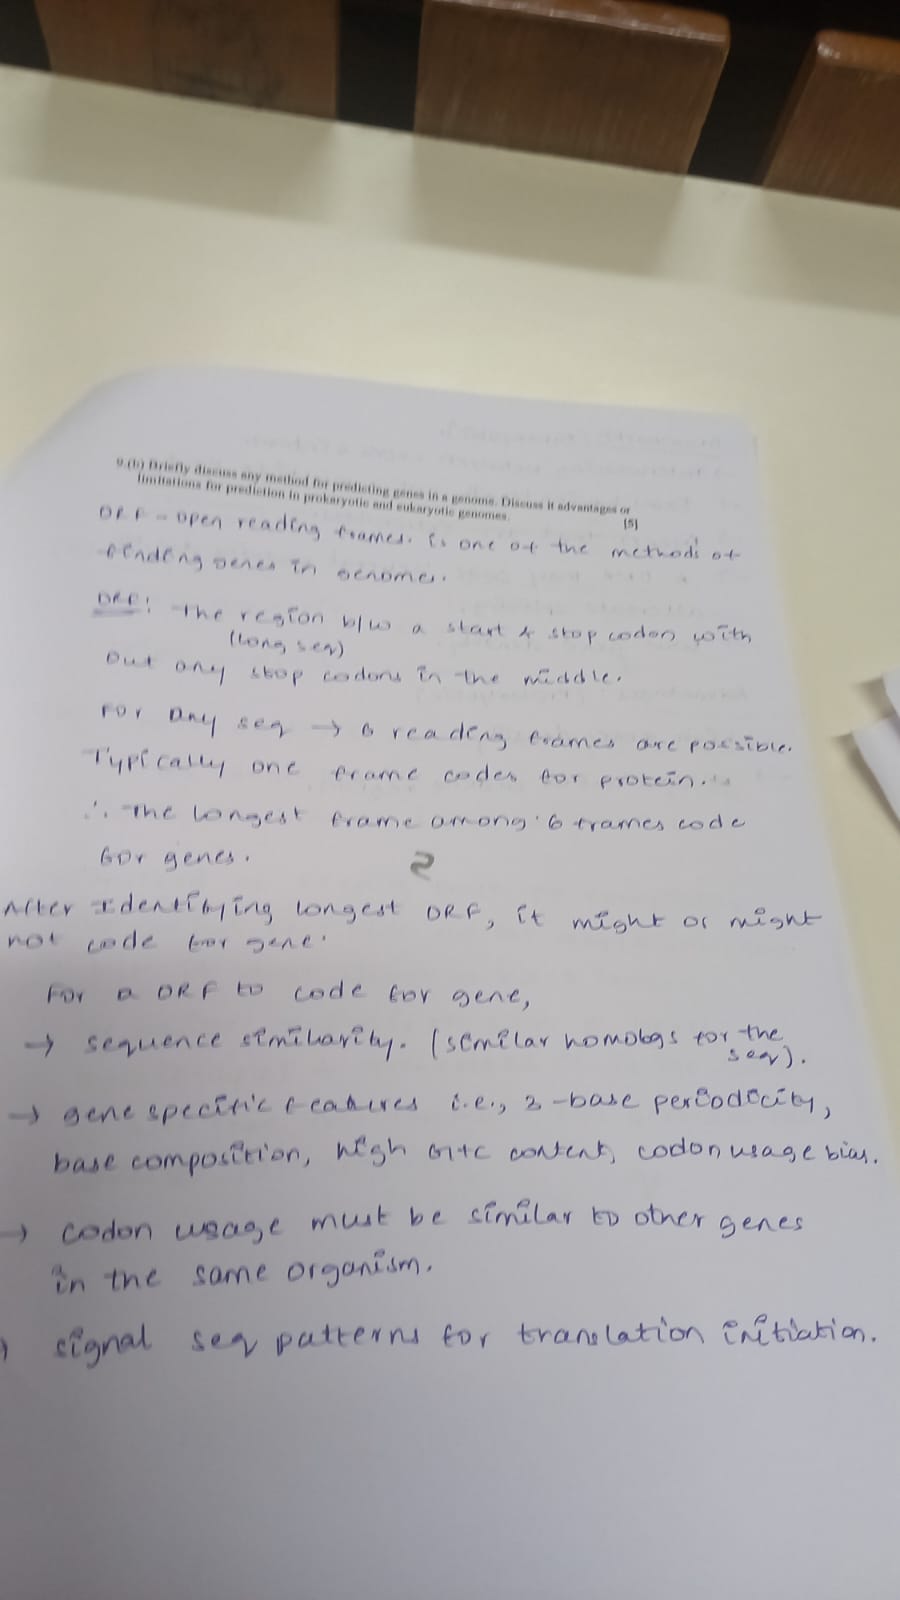 9.(b) Briefly discuss any method for predicting genes in a genome. Discuss it advantages or
limitations for prediction in prokaryotic and eukaryotic genomes.
[5]
ORF - open reading frames. is one of the methods of
finding genes in genomes.
ORF: The region b/w a start & stop codon with
(long seq)
out any stop codons in the middle.
For any seq → 6 reading frames are possible.
Typically one frame codes for protein.
∴ The longest frame among 6 frames code
for genes.
2
After Identifying longest ORF, it might or might
not code for gene.
For a ORF to code for gene,
→ sequence similarity. (similar homologs for the
seq).
→ gene specific features i.e., 3-base periodicity,
base composition, high G+C content, codon usage bias.
→ codon usage must be similar to other genes
in the same organism.
→ signal seq patterns for translation initiation.